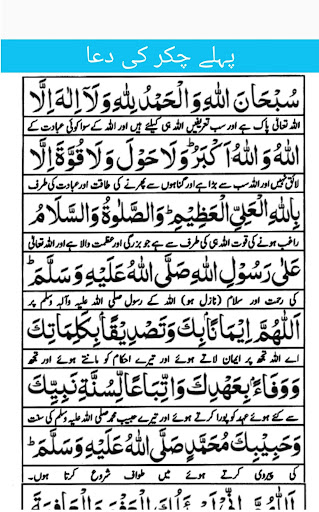 پہلے چکر کی دعا
سُبْحَانَ اللهِ وَالْحَمْدُ لِلّٰهِ وَلَآ اِلٰهَ اِلَّا
اللہ تعالیٰ پاک ہے اور سب تعریفیں اللہ ہی کیلئے ہیں اور اللہ کے سوا کوئی عبادت کے
اللهُ وَاللهُ اَكْبَرُ ؕ وَلَا حَوْلَ وَلَا قُوَّةَ اِلَّا
لائق نہیں اور اللہ سب سے بڑا ہے اور گناہوں سے پھرنے کی طاقت اور عبادت کی طرف
بِاللهِ الْعَلِيِّ الْعَظِيْمِ ؕ وَالصَّلٰوةُ وَالسَّلَامُ
راغب ہونے کی قوت اللہ ہی کی طرف سے ہے جو بزرگی اور عظمت والا ہے اور اللہ تعالیٰ
عَلٰى رَسُوْلِ اللهِ صَلَّى اللهُ عَلَيْهِ وَسَلَّمَ ؕ
کی رحمت اور سلام (نازل ہو) اللہ کے رسول صلی اللہ علیہ وآلہ وسلم پر
اَللّٰهُمَّ اِيْمَانًا بِكَ وَتَصْدِيْقًا بِكَلِمَاتِكَ
اے اللہ تجھ پر ایمان لاتے ہوئے اور تیرے احکام کو مانتے ہوئے اور تجھ
وَوَفَآءً بِعَهْدِكَ وَاتِّبَاعًا لِّسُنَّةِ نَبِيِّكَ
سے کئے ہوئے عہد کو پورا کرتے ہوئے اور تیرے حبیب محمد صلی اللہ علیہ وسلم کی سنت
وَحَبِيْبِكَ مُحَمَّدٍ صَلَّى اللهُ عَلَيْهِ وَسَلَّمَ ؕ
کی پیروی کرتے ہوئے میں طواف شروع کرتا ہوں۔
اَللّٰهُمَّ اِنِّيْ اَسْئَلُكَ الْعَفْوَ وَالْعَافِيَةَ